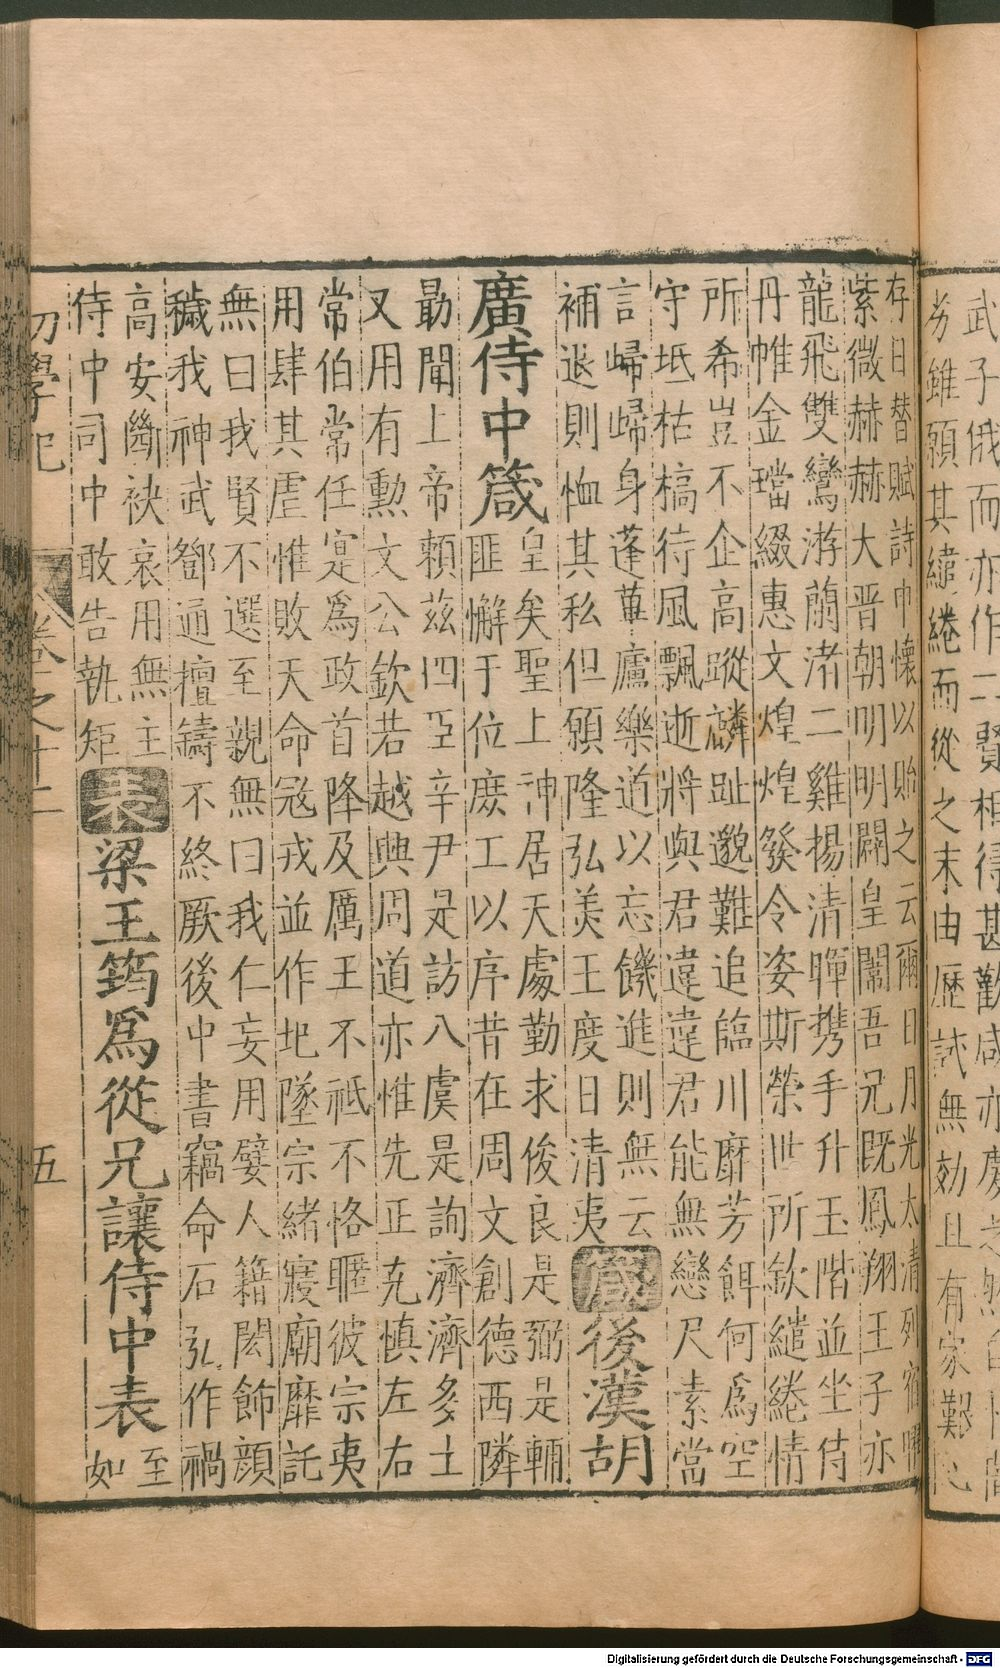 武子俄而亦作二賢相得甚歡咸亦慶之然自
劣雖願其繾綣而從之末由歷試無効且有家艱
存日替賦詩申懷以貽之云爾日月光太清列宿曜
紫微赫赫大晋朝明明闢皇闈吾兄既鳳翔王子亦
龍飛雙鸞游蘭渚二雞揚清暉携手升玉階並坐侍
丹帷金璫綴惠文煌煌發令姿斯榮世所欽繾綣情
所希豈不企高蹤麟趾邈難追臨川靡芳餌何為空
守坻枯槁待風飄逝將與君違違君能無戀尺素當
言歸歸身蓬蓽廬樂道以忘饑進則無云
補退則恤其私但願隆弘美王度日清夷
箴後漢胡
廣侍中箴
皇矣聖上神居天處勤求俊良是弼是輔
匪懈于位庶工以序昔在周文創德西隣
勗聞上帝賴茲四臣辛尹是訪八虞是詢濟濟多士
又用有勳文公欽若越興周道亦惟先正克慎左右
常伯常任寔爲政首降及厲王不祗不恪暱彼宗夷
用肆其虐惟敗天命冦戎並作圯墜宗緒寢廟靡託
無曰我賢不選至親無曰我仁妄用嬖人籍閎飾顔
穢我神武鄧通擅鑄不終厥後中書竊命石弘作禍
高安斷袂哀用無主
侍中司中敢告執矩
表梁王筠爲從兄讓侍中表
至
如
初學記
卷之十二
五
Digitalisierung gefördert durch die Deutsche Forschungsgemeinschaft - DFG